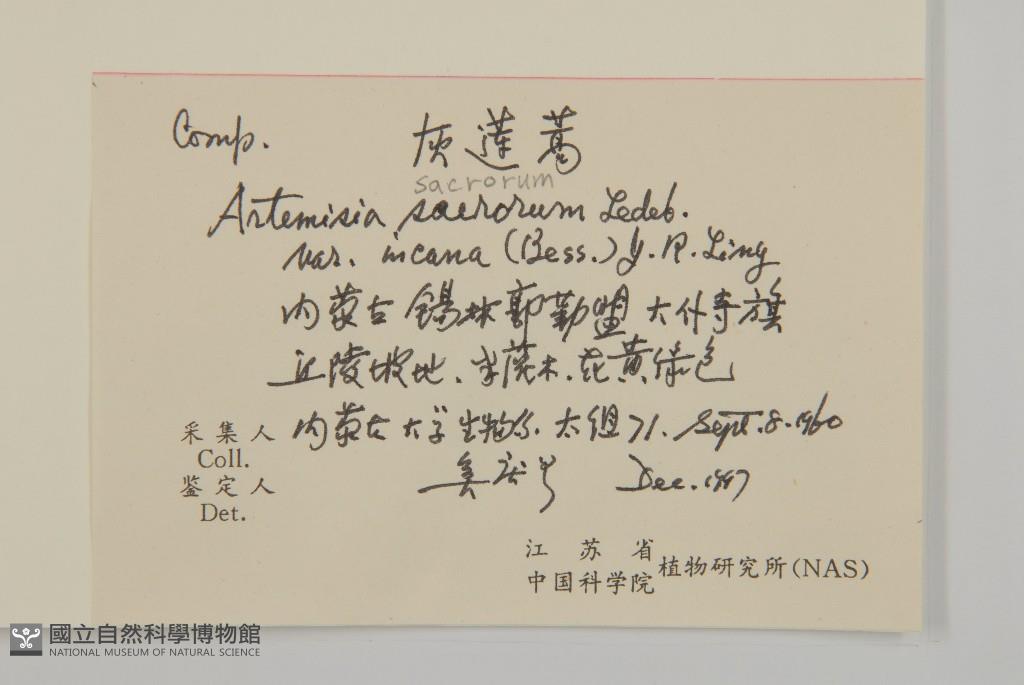 Comp. 灰莲蒿
sacrorum
Artemisia sacrorum Ledeb.
var. incana (Bess.) Y. R. Ling
内蒙古 锡林郭勒盟 太仆寺旗
丘陵坡地、半灌木、花黄绿色
采集人 内蒙古大学生物系 太组71. Sept. 8. 1960
Coll.
鉴定人 Dec. 1987
Det.
江苏省
中国科学院 植物研究所(NAS)
國立自然科學博物館
NATIONAL MUSEUM OF NATURAL SCIENCE